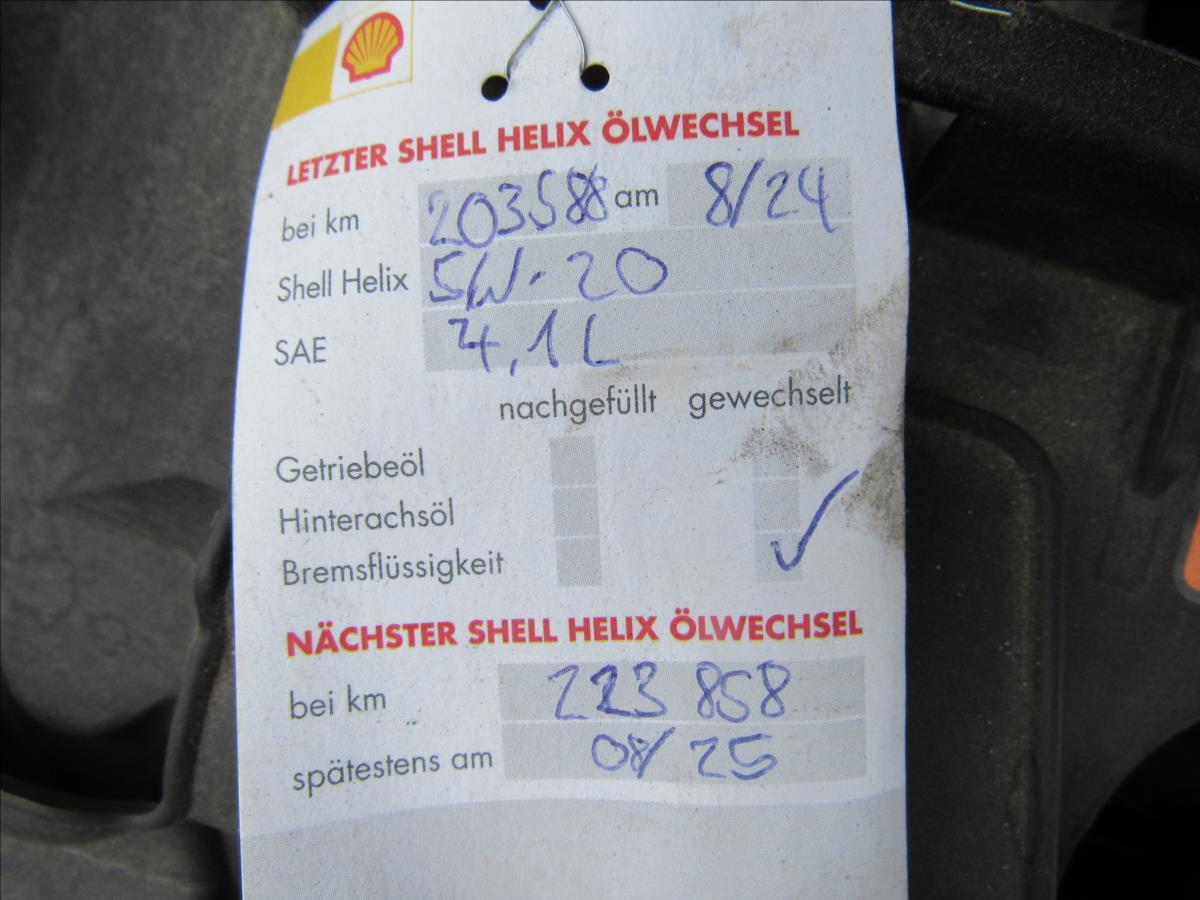 LETZTER SHELL HELIX ÖLWECHSEL
bei km 203588 am 8/24
Shell Helix 5W-20
SAE 4,1 L
nachgefüllt gewechselt
Getriebeöl
Hinterachsöl
Bremsflüssigkeit ✓
NÄCHSTER SHELL HELIX ÖLWECHSEL
bei km 223 858
spätestens am 08/25